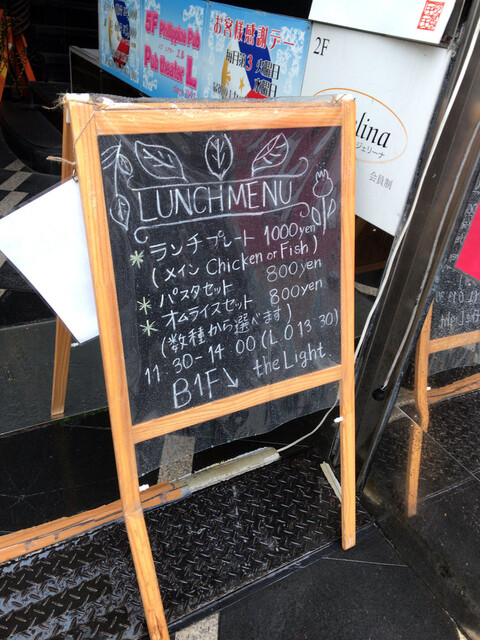 お客様感謝デー
毎月第3火曜日
5F Philippine Pub
Pub theater L
2F
会員制
LUNCH MENU
* ランチプレート 1000yen
(メイン Chicken or Fish)
* パスタセット 800yen
* オムライスセット 800yen
(数種から選べます)
11:30-14:00 (L.O 13:30)
B1F↘ the Light